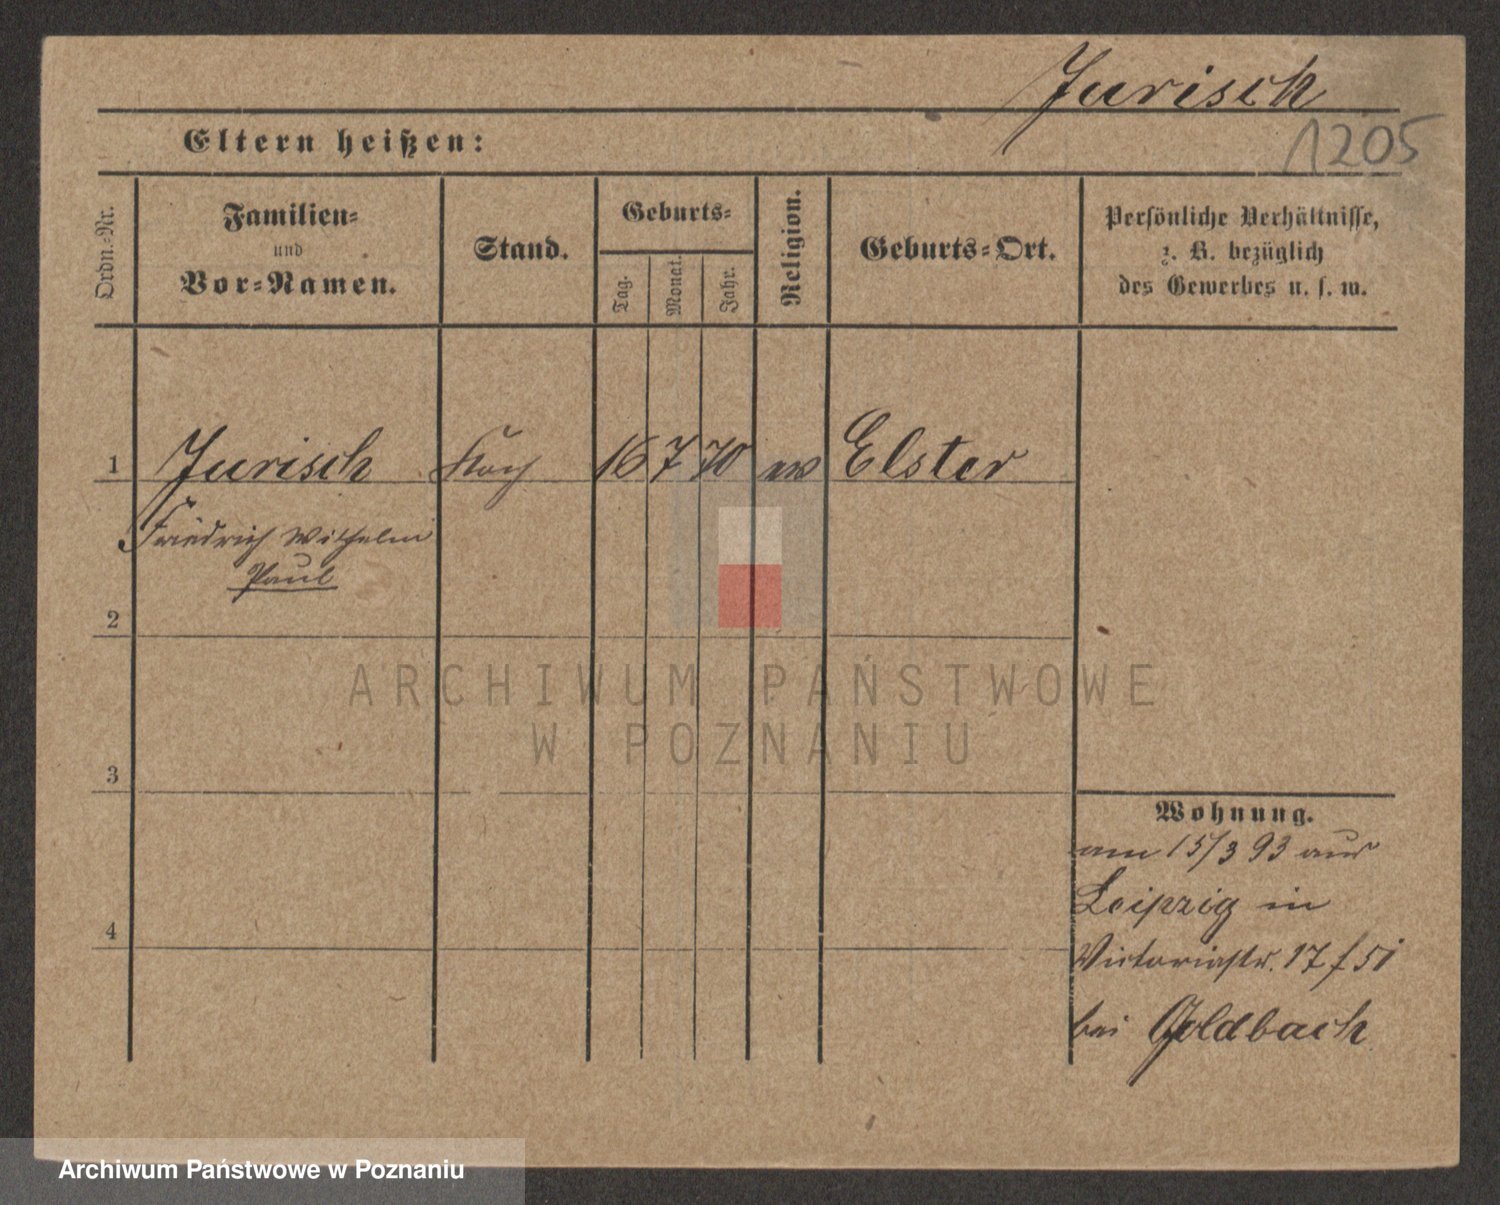 Jurisch
1205
Eltern heißen:
Ordn.-Nr.
Familien-
und
Vor-Namen.
Stand.
Geburts-
Tag.
Monat.
Jahr.
Religion.
Geburts-Ort.
Persönliche Verhältnisse,
z. B. bezüglich
des Gewerbes u. s. w.
1 Jurisch Koch 16 7 70 ev Elster
Friedrich Wilhelm
Paul
2
3
4
Wohnung.
am 15/3 93 aus
Leipzig in
Victoriastr. 17
bei Goldbach
ARCHIWUM PAŃSTWOWE
W POZNANIU
Archiwum Państwowe w Poznaniu